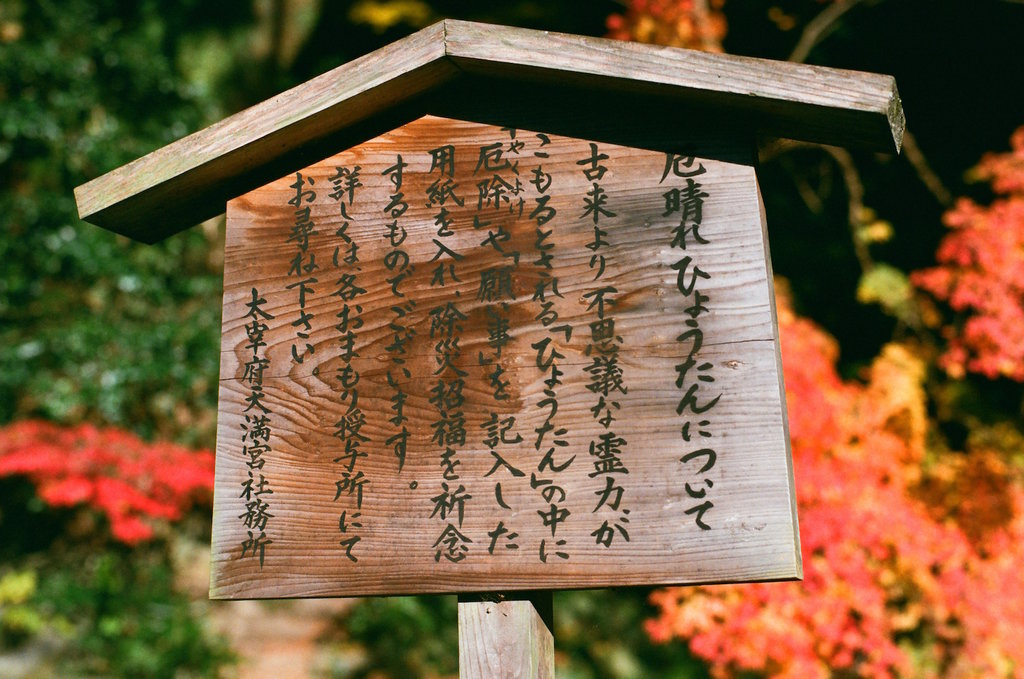 厄晴れひょうたんについて
古来より不思議な霊力が
こもるとされる「ひょうたん」の中に
やくよけ
厄除」や「願い事」を記入した
用紙を入れ、除災招福を祈念
するものでございます。
詳しくは各おまもり授与所にて
お尋ね下さい。
太宰府天満宮社務所